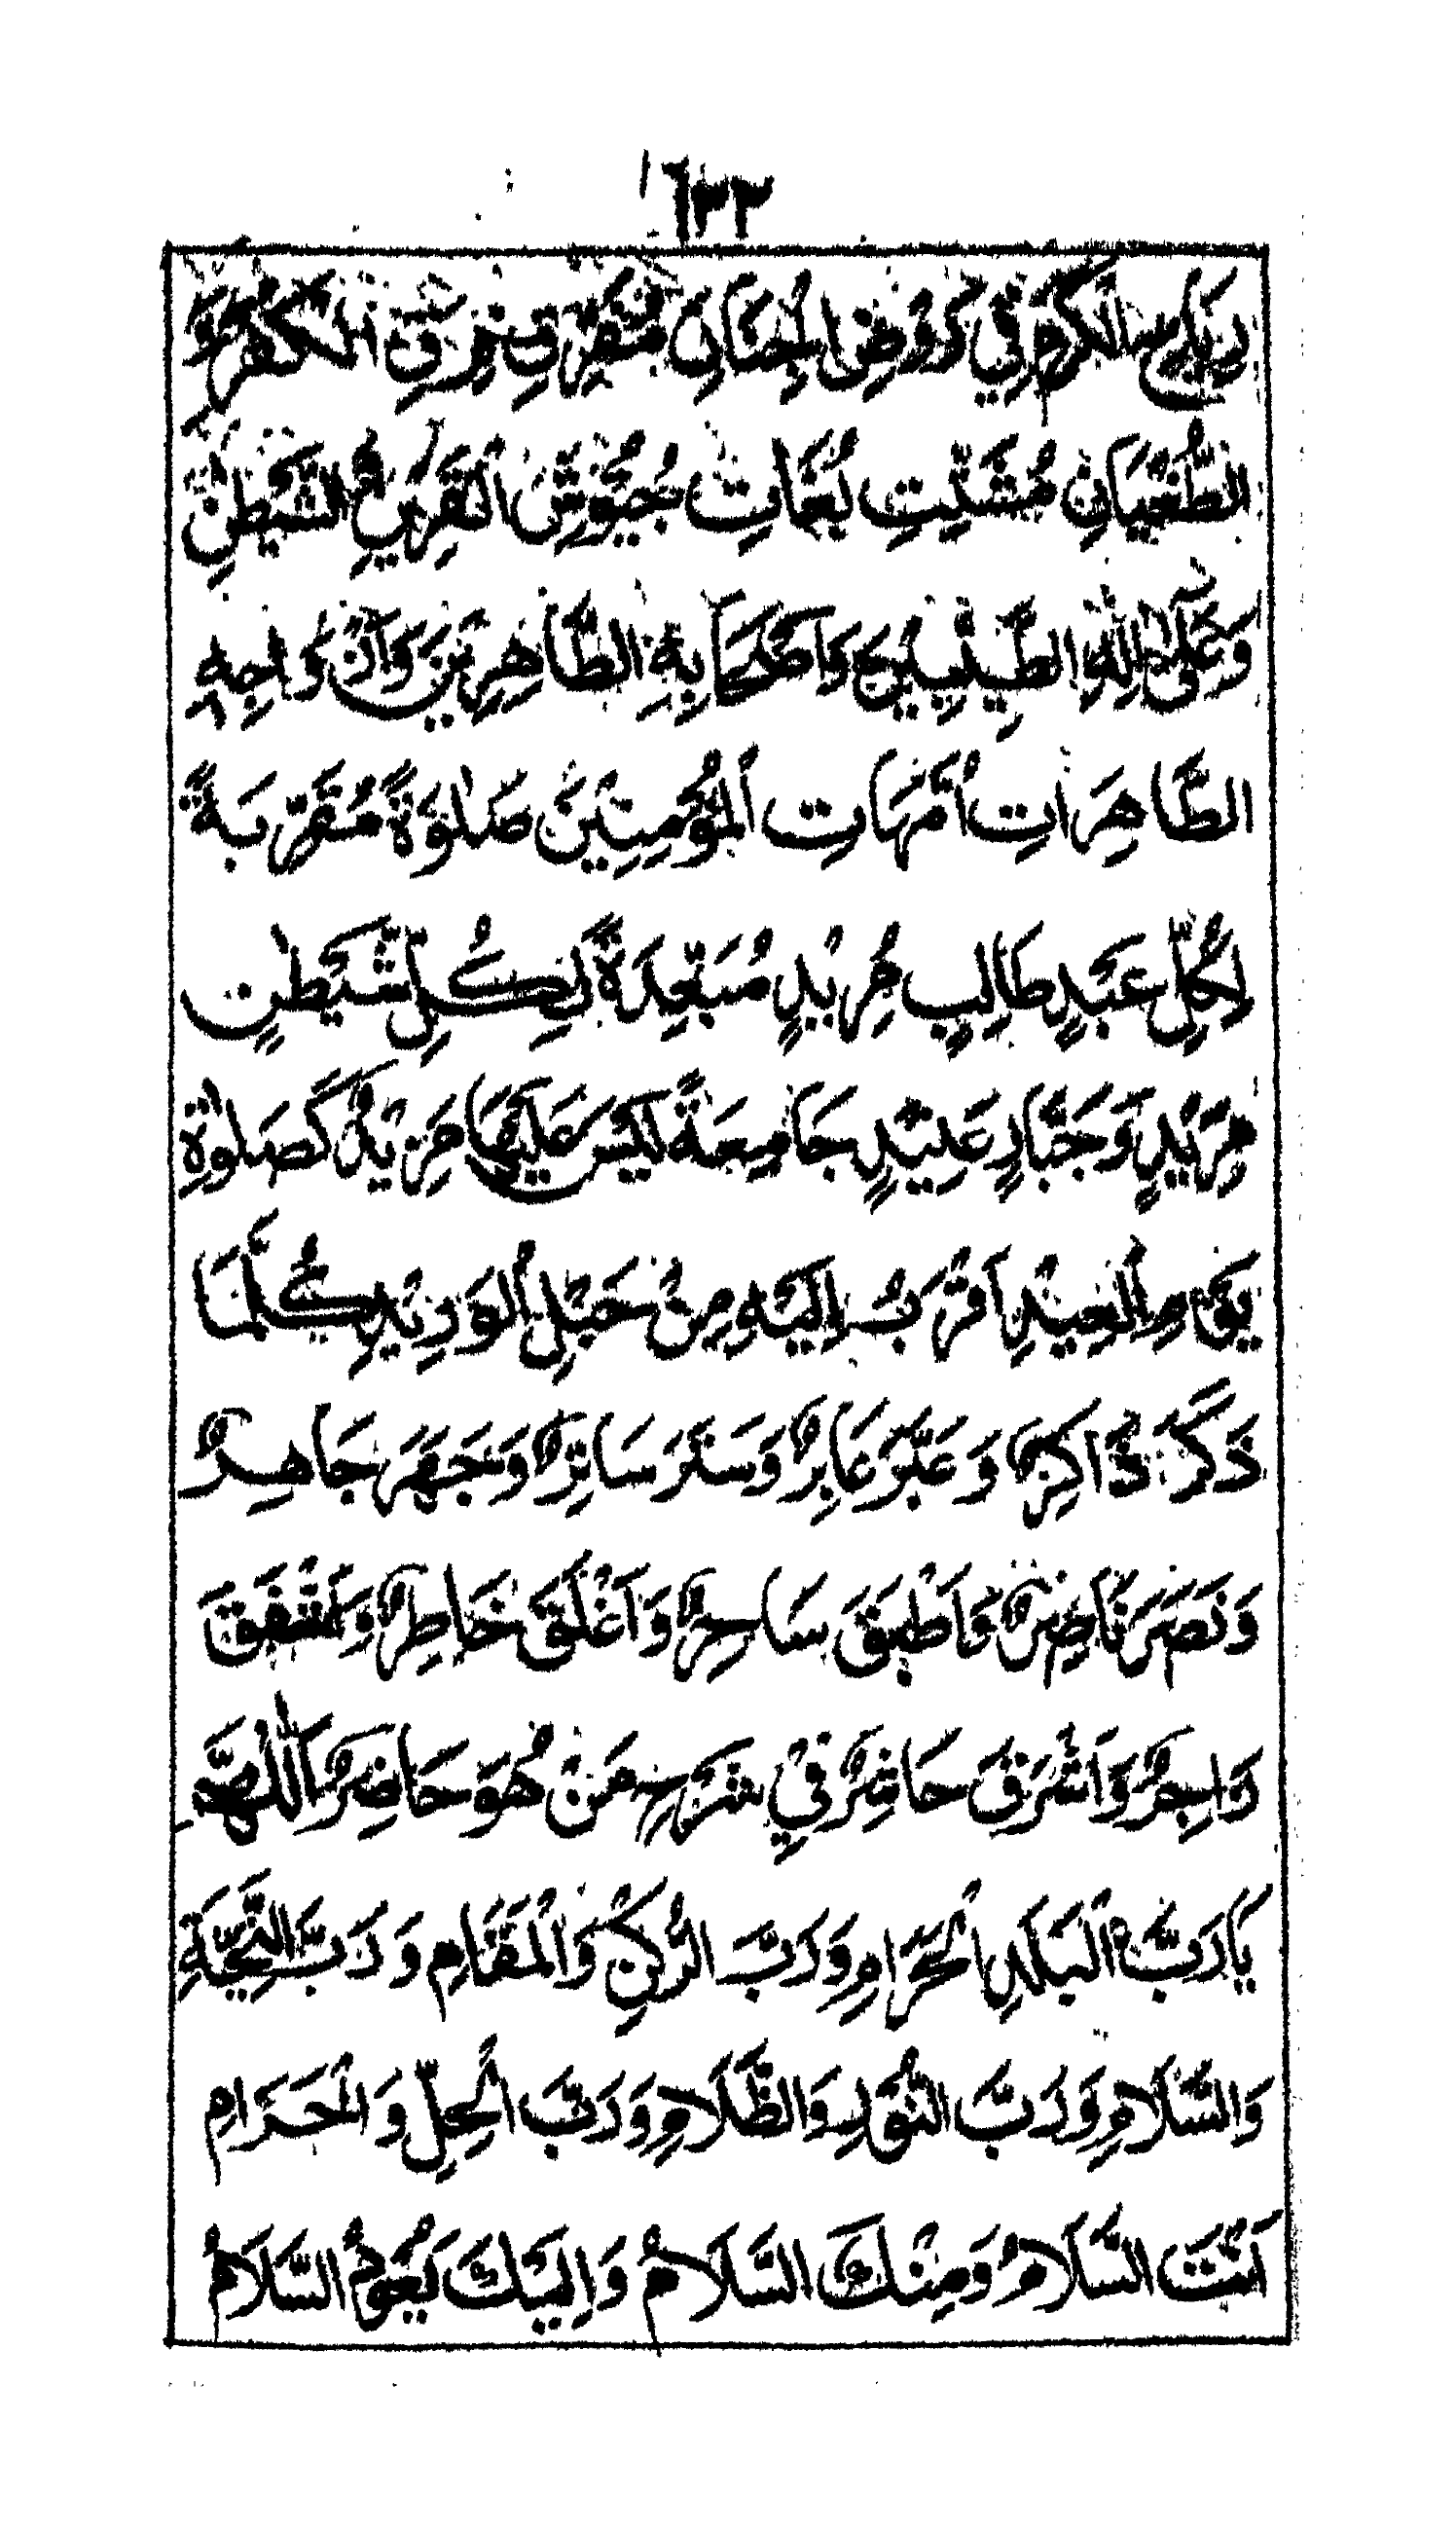 ١٢٣
رِيَاحِ الْكَرَمِ فِي رَوْضِ الْجِنَانِ مُفَرِّقِ فِرَقِ الْكُفْرِ وَ
الطُّغْيَانِ مُشَتِّتِ بُغَاتِ جُيُوشِ الْقَرِيْنِ الشَّيْطٰنِ
وَعَلٰى اٰلِهِ الطَّيِّبِيْنَ وَاَصْحَابِهِ الطَّاهِرِيْنَ وَاَزْوَاجِهِ
الطَّاهِرَاتِ اُمَّهَاتِ الْمُؤْمِنِيْنَ صَلٰوةً مُقَرِّبَةً
لِكُلِّ عَبْدٍ طَالِبٍ مُرِيْدٍ مُبَعِّدَةً لِكُلِّ شَيْطٰنٍ
مَرِيْدٍ وَجَبَّارٍ عَنِيْدٍ جَامِعَةً لَيْسَ عَلَيْهَا مَزِيْدٌ كَصَلٰوةِ
اَقْرَبُ اِلَيْهِ مِنْ حَبْلِ الْوَرِيْدِ كُلَّمَا
ذَكَرَ ذَاكِرٌ وَعَبَّرَ عَابِرٌ وَسَتَرَ سَاتِرٌ وَجَهَرَ جَاهِرٌ
وَنَصَرَ نَاصِرٌ وَاَطْبَقَ سَاحِرٌ وَاَغْلَقَ خَاطِرٌ وَاَشْفَقَ
وَاَشْرَقَ فِيْ مَنْ هُوَ حَاضِرٌ اَللّٰهُمَّ
يَارَبَّ الْبَلَدِ الْحَرَامِ وَرَبَّ الرُّكْنِ وَالْمَقَامِ وَرَبَّ التَّحِيَّةِ
وَالسَّلَامِ وَرَبَّ النُّوْرِ وَالظَّلَامِ وَرَبَّ الْحِلِّ وَالْحَرَامِ
اَنْتَ السَّلَامُ وَمِنْكَ السَّلَامُ وَاِلَيْكَ يَعُوْدُ السَّلَامُ